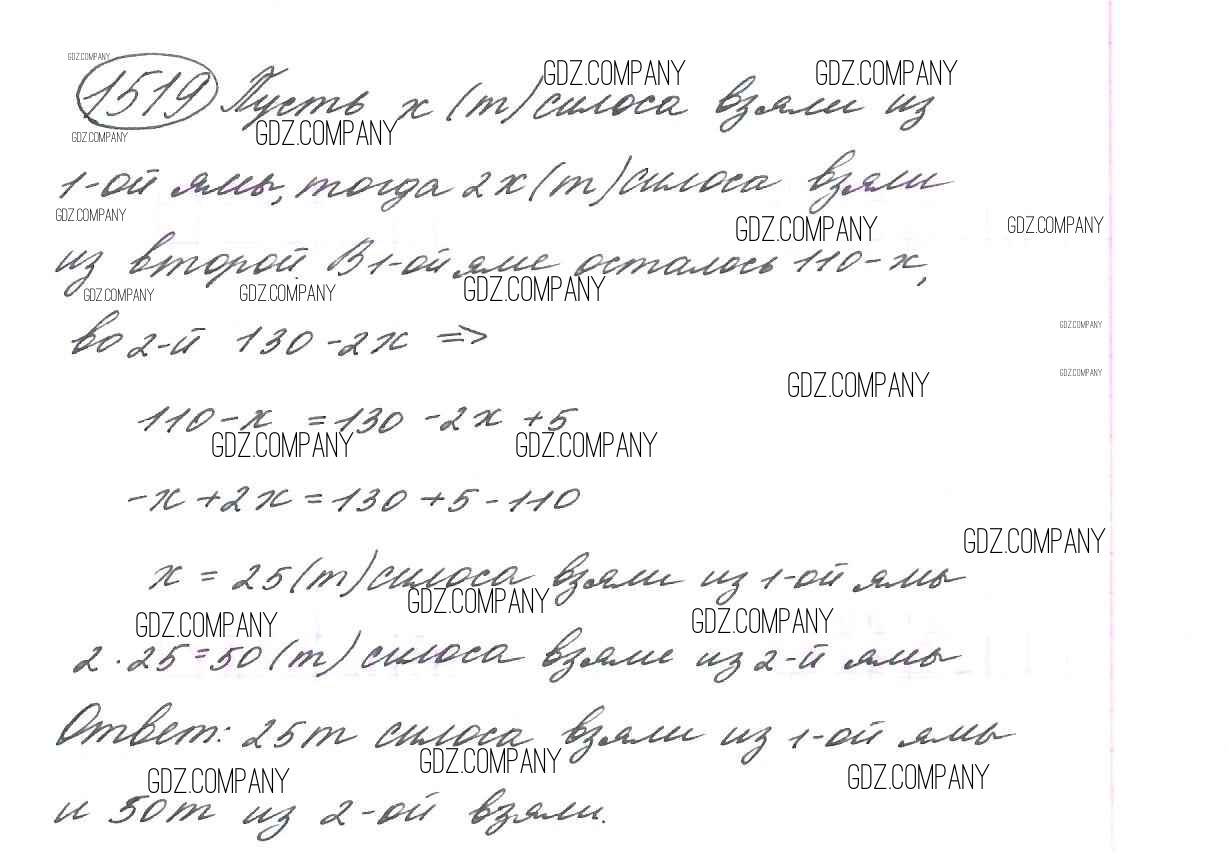 GDZ.COMPANY
GDZ.COMPANY GDZ.COMPANY
1519 Пусть x (т) силоса взяли из
GDZ.COMPANY GDZ.COMPANY
1-ой ямы, тогда 2x (т) силоса взяли
GDZ.COMPANY GDZ.COMPANY GDZ.COMPANY
из второй. В 1-ой яме осталось 110-x,
GDZ.COMPANY GDZ.COMPANY GDZ.COMPANY
GDZ.COMPANY
во 2-й 130-2x =>
GDZ.COMPANY GDZ.COMPANY
110-x = 130-2x+5
GDZ.COMPANY GDZ.COMPANY
-x+2x=130+5-110
GDZ.COMPANY
x = 25 (т) силоса взяли из 1-ой ямы
GDZ.COMPANY GDZ.COMPANY GDZ.COMPANY
2·25=50 (т) силоса взяли из 2-й ямы
Ответ: 25т силоса взяли из 1-ой ямы
GDZ.COMPANY GDZ.COMPANY GDZ.COMPANY
и 50т из 2-ой взяли.